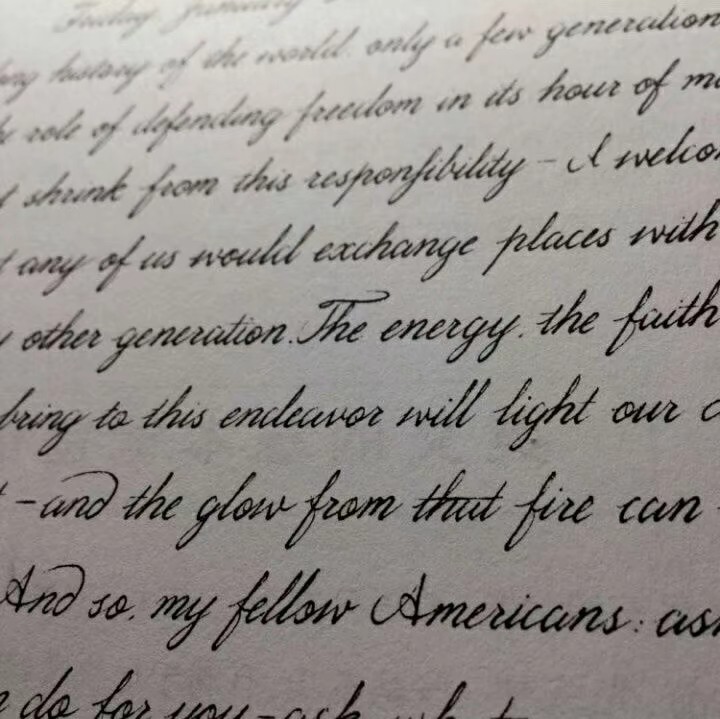 Friday January
history of the world, only a few generation
role of defending freedom in its hour of
shrink from this responsibility – I welco
any of us would exchange places with
other generation. The energy, the faith
bring to this endeavor will light our
– and the glow from that fire can
And so, my fellow Americans: ask
do for you – ask what